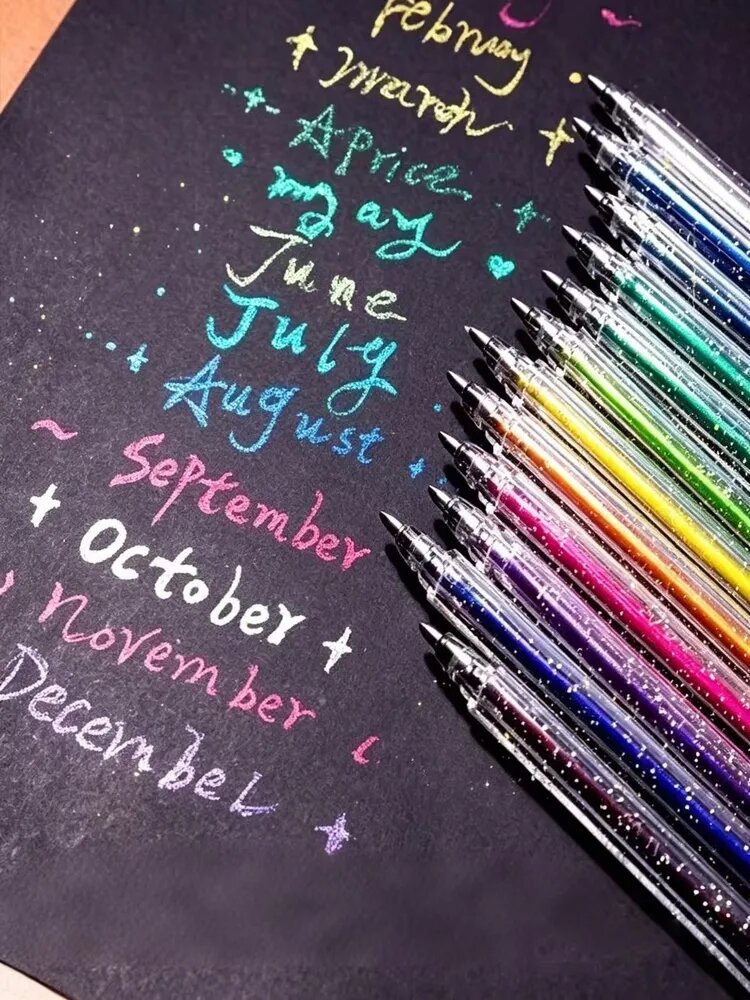 February
march
Aprice
may
June
July
August
September
October
November
December